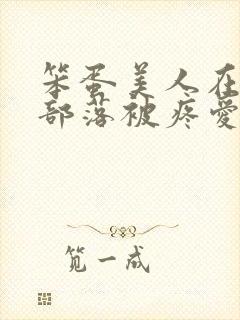 笨蛋美人在
部落被疼爱
笕一成